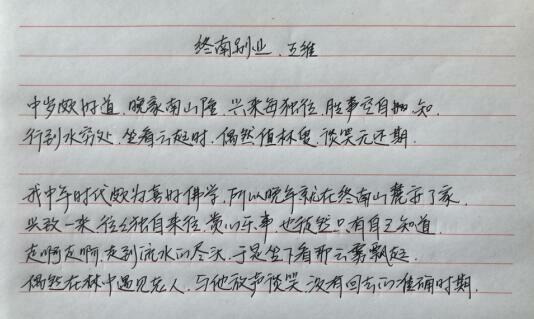 终南别业.王维
中岁颇好道.晚家南山陲.兴来每独往.胜事空自知.
行到水穷处.坐看云起时.偶然值林叟.谈笑无还期.
我中年时代颇为喜好佛学,所以晚年就在终南山麓安了家.
兴致一来往往独自来往,赏心乐事,也敁然只有自己知道.
走啊走啊,走到流水的尽头.于是坐下看那云雾飘起.
偶然在林中遇见老人,与他放声谈笑.没有回去的准确时期.